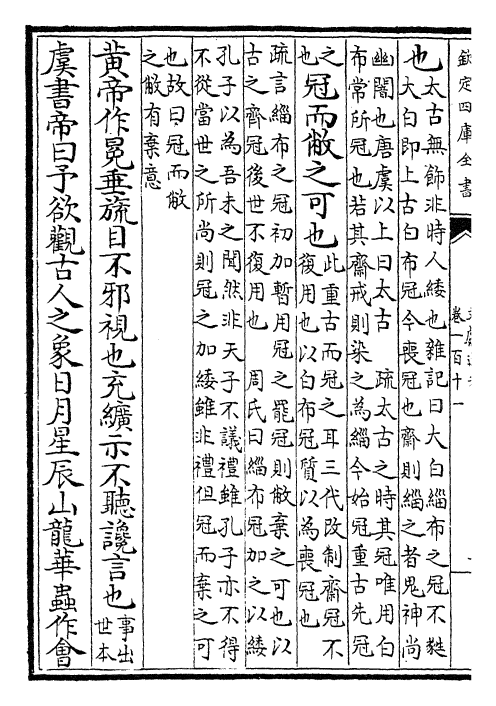 欽定四庫全書
卷一百十一
也
太古無飾非時人緌也雜記曰大白緇布之冠不蕤
大白即上古白布冠今喪冠也齋則緇之者鬼神尚
幽闇也唐虞以上曰太古　疏太古之時其冠唯用白
布常所冠也若其齋戒則染之為緇今始冠重古先冠
之
也
冠而敝之可也
此重古而冠之耳三代改制齋冠不
復用也以白布冠質以為喪冠也
疏言緇布之冠初加暫用冠之罷冠則敝棄之可也以
古之齋冠後世不復用也　周氏曰緇布冠加之以緌
孔子以為吾未之聞然非天子不議禮雖孔子亦不得
不從當世之所尚則冠之加緌雖非禮但冠而棄之可
也故曰冠而敝
之敝有棄意
黄帝作冕垂旒目不邪視也充纊示不聽讒言也
事出
世本
虞書帝曰予欲觀古人之象日月星辰山龍華蟲作會